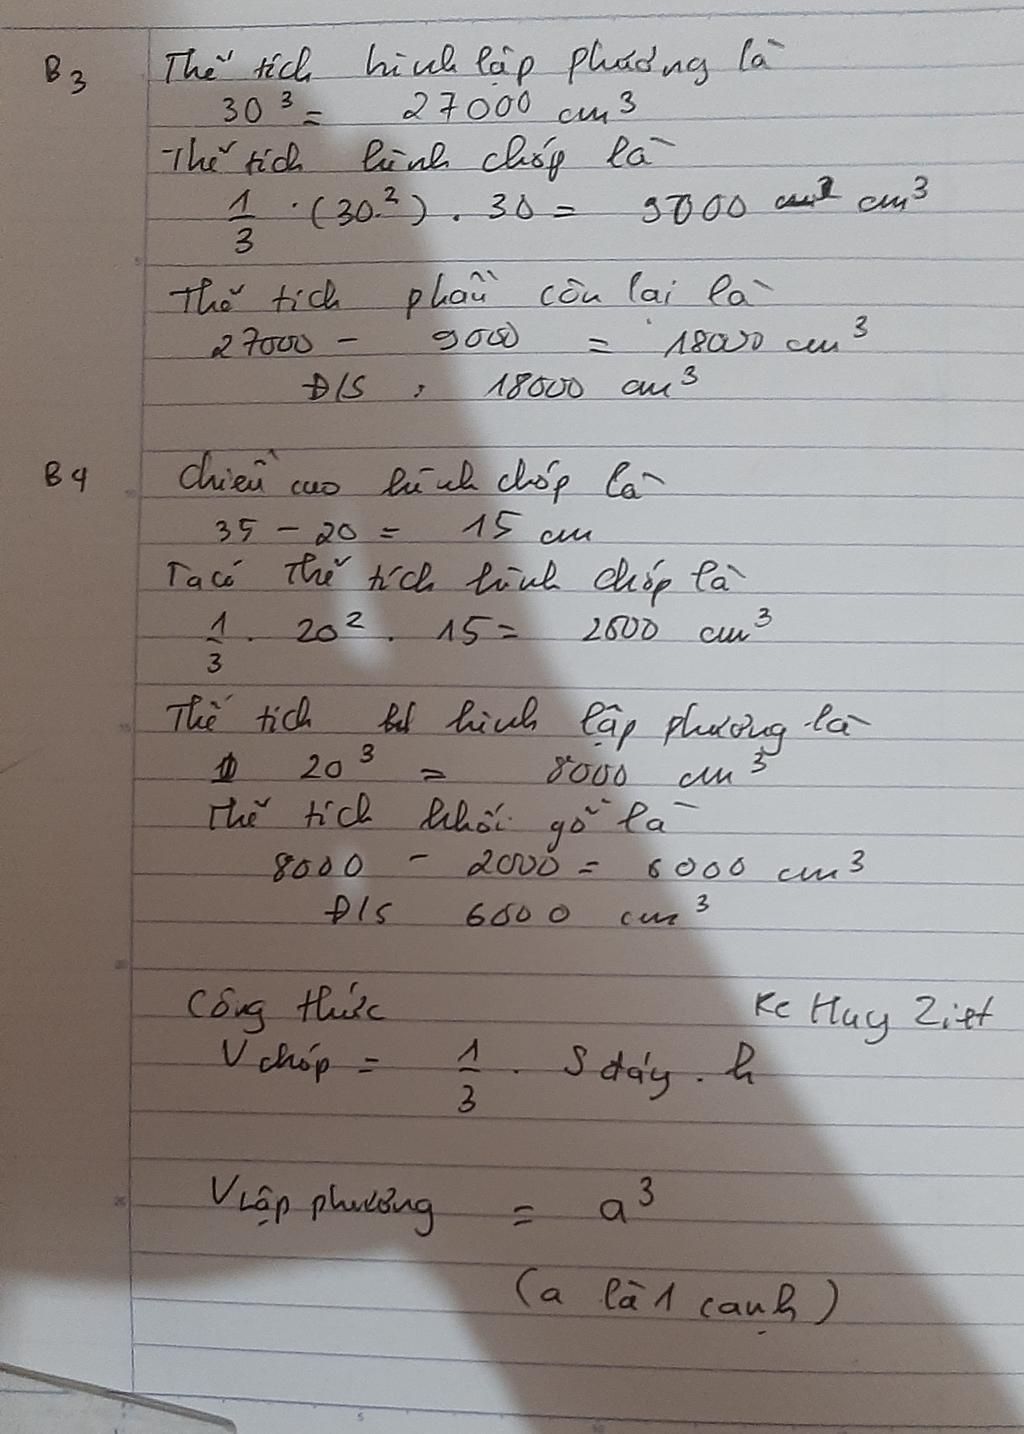 B3 Thể tích hình lập phương là
30³ = 27000 cm³
Thể tích hình chóp là
1/3 . (30²) . 30 = 9000 cm³
Thể tích phần còn lại là
27000 - 9000 = 18000 cm³
Đ/S : 18000 cm³
B4 Chiều cao hình chóp là
35 - 20 = 15 cm
Ta có Thể tích hình chóp là
1/3 . 20² . 15 = 2000 cm³
Thể tích hình lập phương là
20³ = 8000 cm³
Thể tích khối gỗ là
8000 - 2000 = 6000 cm³
Đ/S 6000 cm³
Công thức
Kc Huy Ziet
V chóp = 1/3 . S đáy . h
V Lập phương = a³
(a là 1 cạnh)